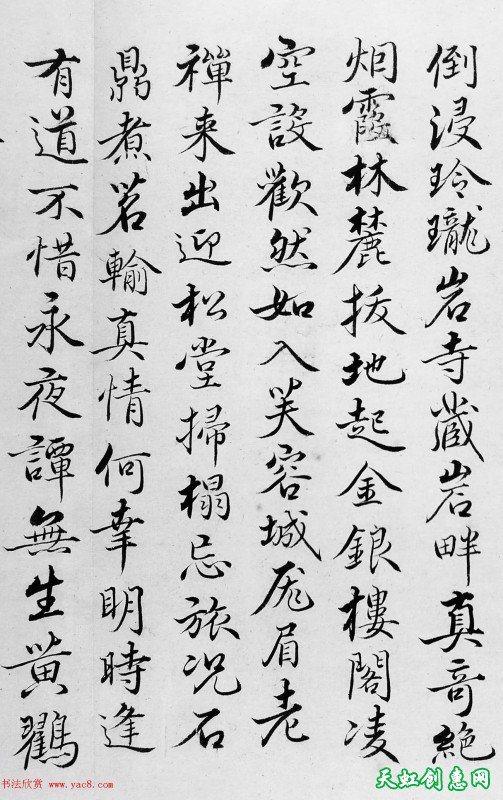 倒浸玲瓏岩寺藏岩畔真奇絶
烟霞林麓拔地起金銀樓閣凌
空設歡然如入芙容城厖眉老
禪来出迎松堂掃榻忘旅况石
鼎煮茗輸真情何幸明時逢
有道不惜永夜譚無生黄鸐
书法欣赏 www.yac8.com
天虹创惠网